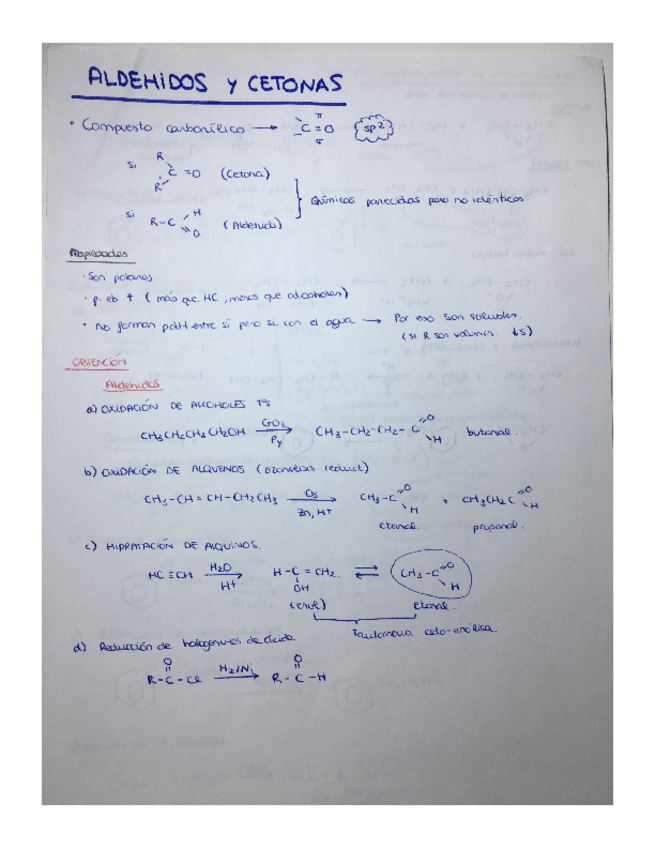 ALDEHIDOS Y CETONAS
• Compuesto carbonílico → C=O sp²
π
σ
Si R R' C=O (Cetona)
Químicas parecidas pero no idénticas.
Si R-C H O (Aldehido)
Propiedades
· Son polares
· p. eb ↑ (más que HC, menos que alcoholes)
· No forman pdH entre sí pero sí con el agua → Por eso son solubles.
(si R son volumin. ↓S)
OBTENCIÓN
Aldehidos
a) OXIDACIÓN DE ALCOHOLES 1º
CH3CH2CH2CH2OH CrO3 Py → CH3-CH2-CH2-C=O H butanal.
b) OXIDACIÓN DE ALQUENOS (ozonolisis reduct)
CH3-CH=CH-CH2CH3 O3 Zn, H+ → CH3-C=O H + CH3CH2C=O H
etanal. propanal.
c) HIDRATACIÓN DE ALQUINOS.
HC≡CH H2O H+ → H-C=CH2 OH ⇌ CH3-C=O H
(enol) etanal.
Tautomería ceto-enólica.
d) Reducción de halogenuros de ácido.
R-C-Cl O H2/Ni → R-C-H O